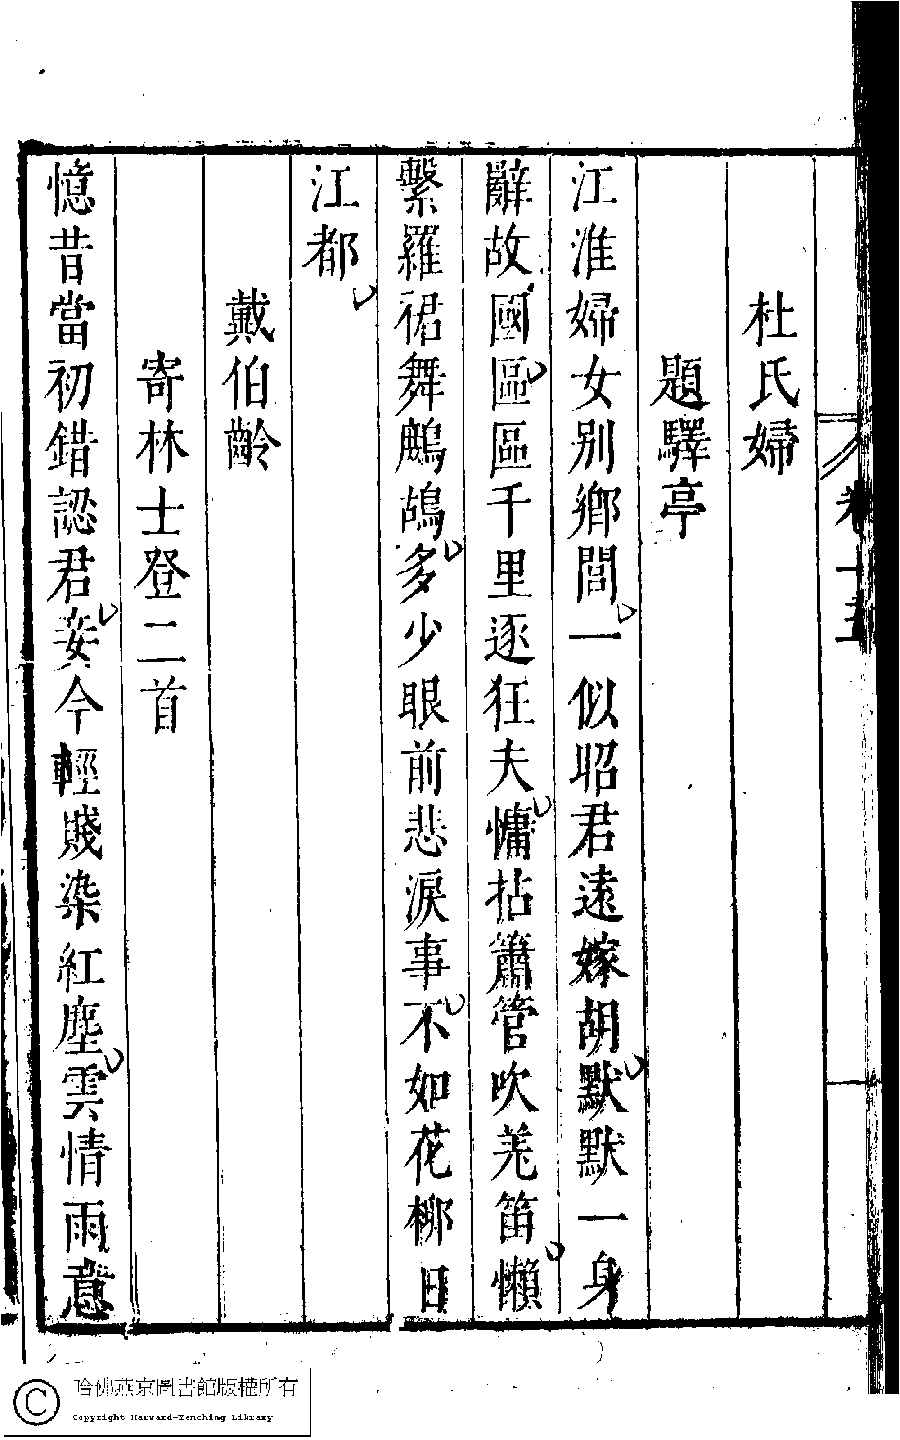 卷十五
杜氏婦
題驛亭
江淮婦女別鄉閭一似昭君遠嫁胡默默一身
辭故國區區千里逐狂夫慵拈簫管吹羌笛懶
繫羅裙舞鷓鴣多少眼前悲淚事不如花柳日
江都
戴伯齡
寄林士登二首
憶昔當初錯認君妾今輕賤染紅塵雲情雨意
哈佛燕京圖書館版權所有
Copyright Harvard-Yenching Library